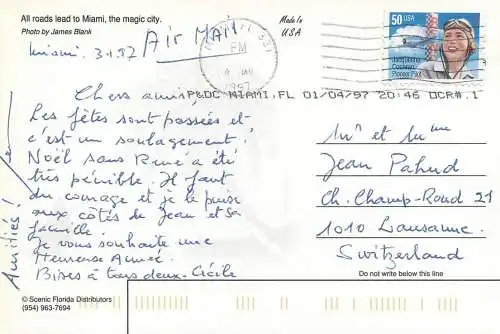 All roads lead to Miami, the magic city.
Photo by James Blank
Made in
USA
Miami 3.1.97
Air Mail
PM
1997
50 USA
Jacqueline
Cochran
Pioneer Pilot
P&DC MIAMI, FL 01/04/97 20:46 OCR#.1
Chers amis,
Les fêtes sont passées et
c'est un soulagement.
Noël sans René a été
très pénible. Il faut
du courage et je le puise
aux côtés de Jean et sa
famille.
Je vous souhaite une
Heureuse Année.
Bises à tous deux - Cécile
Amitiés!
Mr et Mme
Jean Pahud
Ch. Champ-Rond 21
1010 Lausanne
Switzerland
Do not write below this line
© Scenic Florida Distributors
(954) 963-7694